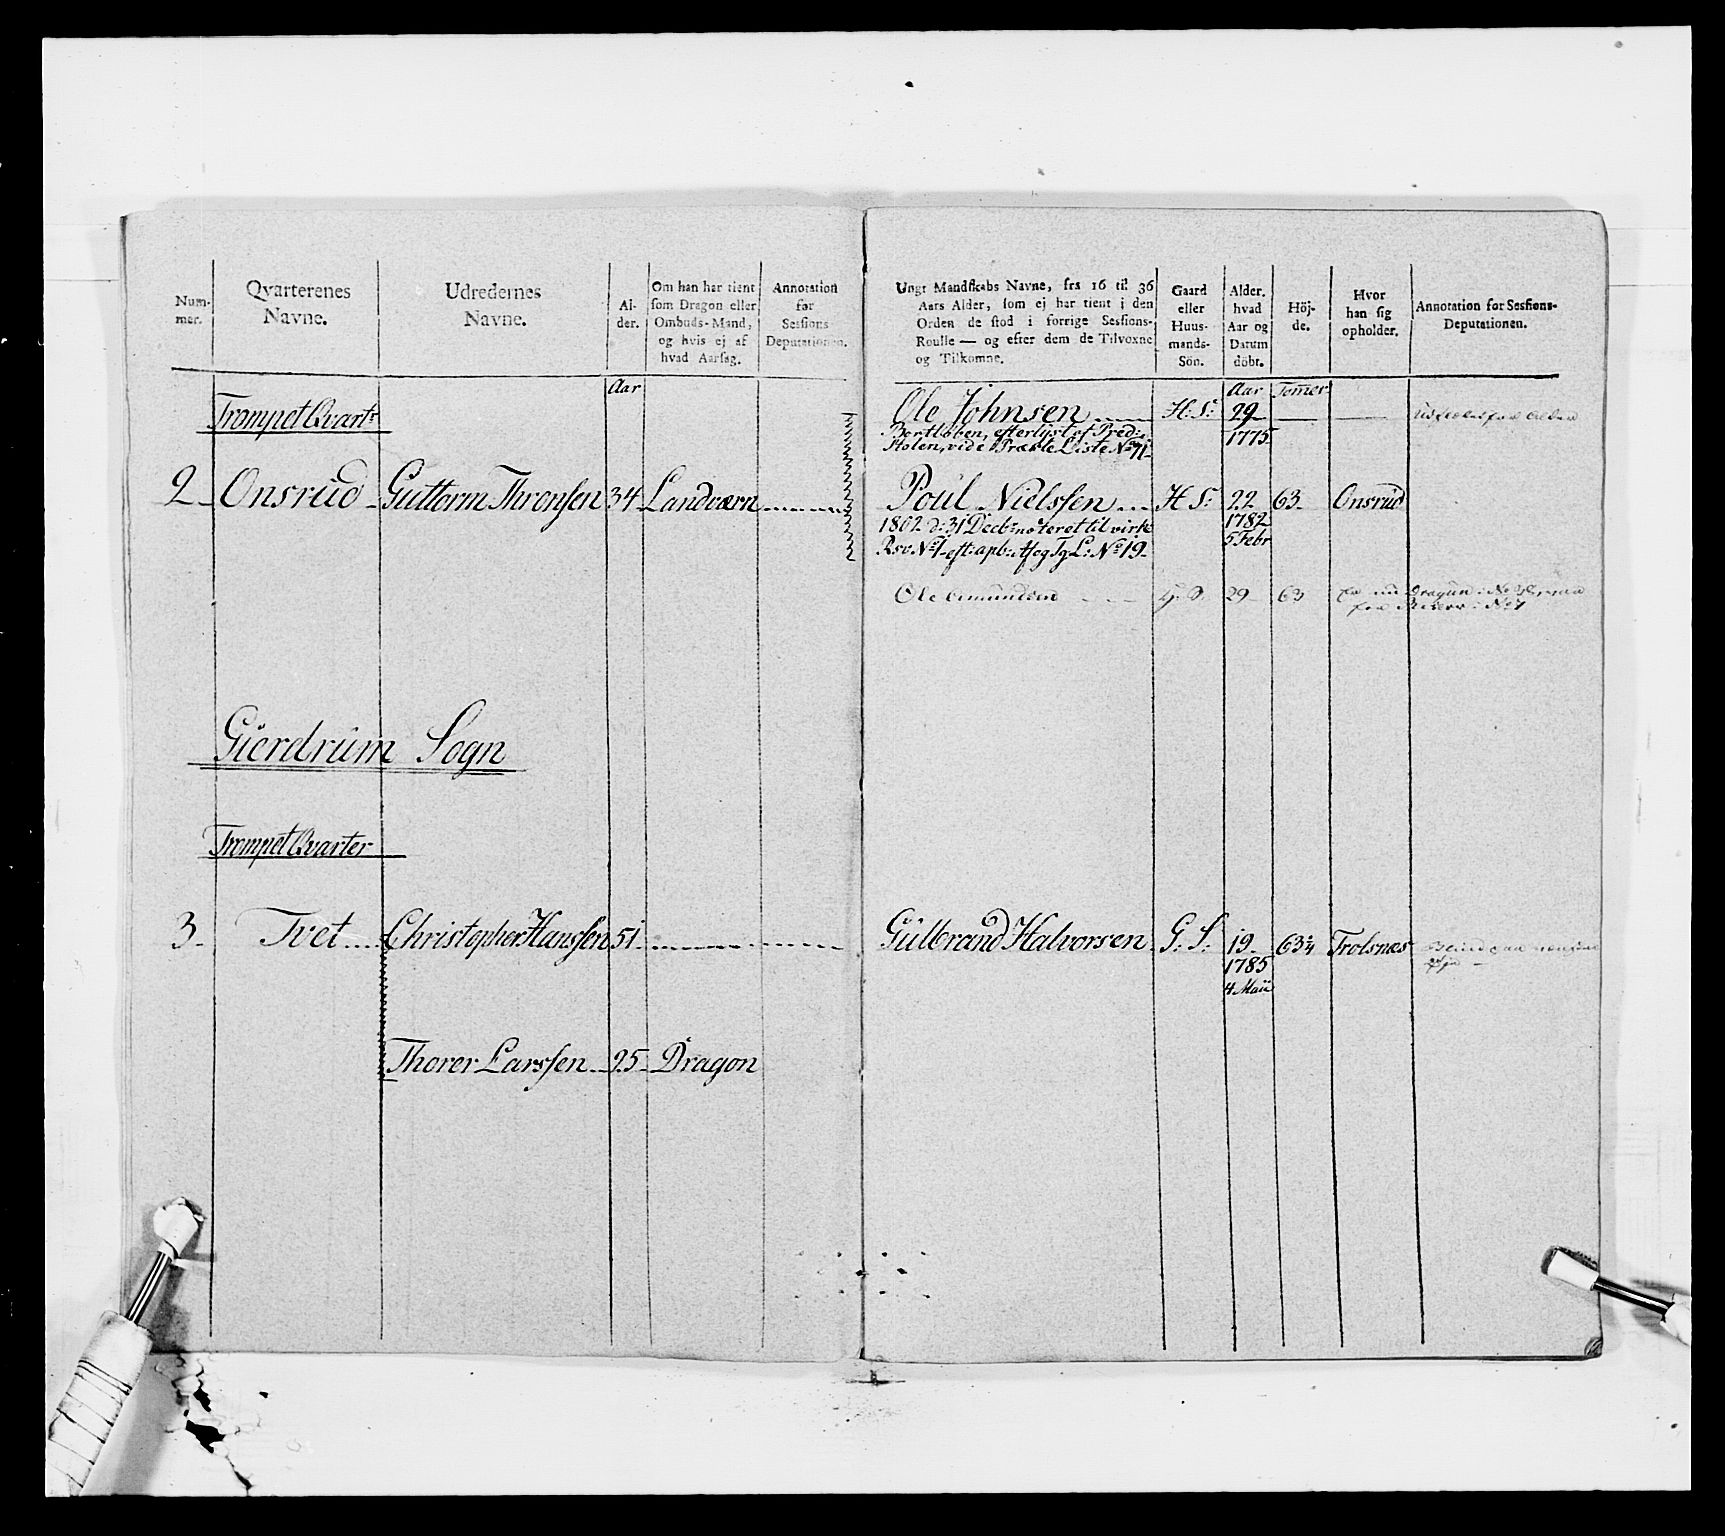 Num-
mer.
Qvarterenes
Navne.
Udredernes
Navne.
Al-
der.
Om han har tient
som Dragon eller
Ombuds-Mand,
og hvis ej af
hvad Aarsag.
Annotation
for
Sessions
Deputationen.
Aar
Trompet Qvartr
2 Onsrud Guttorm Thronsen 34 Landværn
Gierdrum Sogn
Trompet Qvarter
3 Tvet Christopher Hanssen 51
Thorer Larssen 25 Dragon
Ungt Mandskabs Navne, fra 16 til 36
Aars Alder, som ej har tient i den
Orden de stod i forrige Sessions-
Roulle — og efter dem de Tilvoxne
og Tilkomne.
Gaard
eller
Huus-
mands-
Sön.
Alder.
hvad
Aar og
Datum
döbt.
Höj-
de.
Hvor
han sig
opholder.
Annotation for Sessions-
Deputationen.
Aar Tomer
Ole Johnsen H: S: 29
Bortløben, efterlyst af Pred: 1775
Stolen, vide Trækte Liste No 71
Poul Nielssen H S: 22 63 Onsrud
1802 d: 31 Decbr noteret til virk 1782
Rsv. No 1 eft: apb: Afsg Tg L: No 19 5 Febr
Ole Amundsen G. S. 29 63 Dragun
No 7
Gulbrand Halvorsen G: S: 19 63¼ Trolsnæs
1785
4 Maii